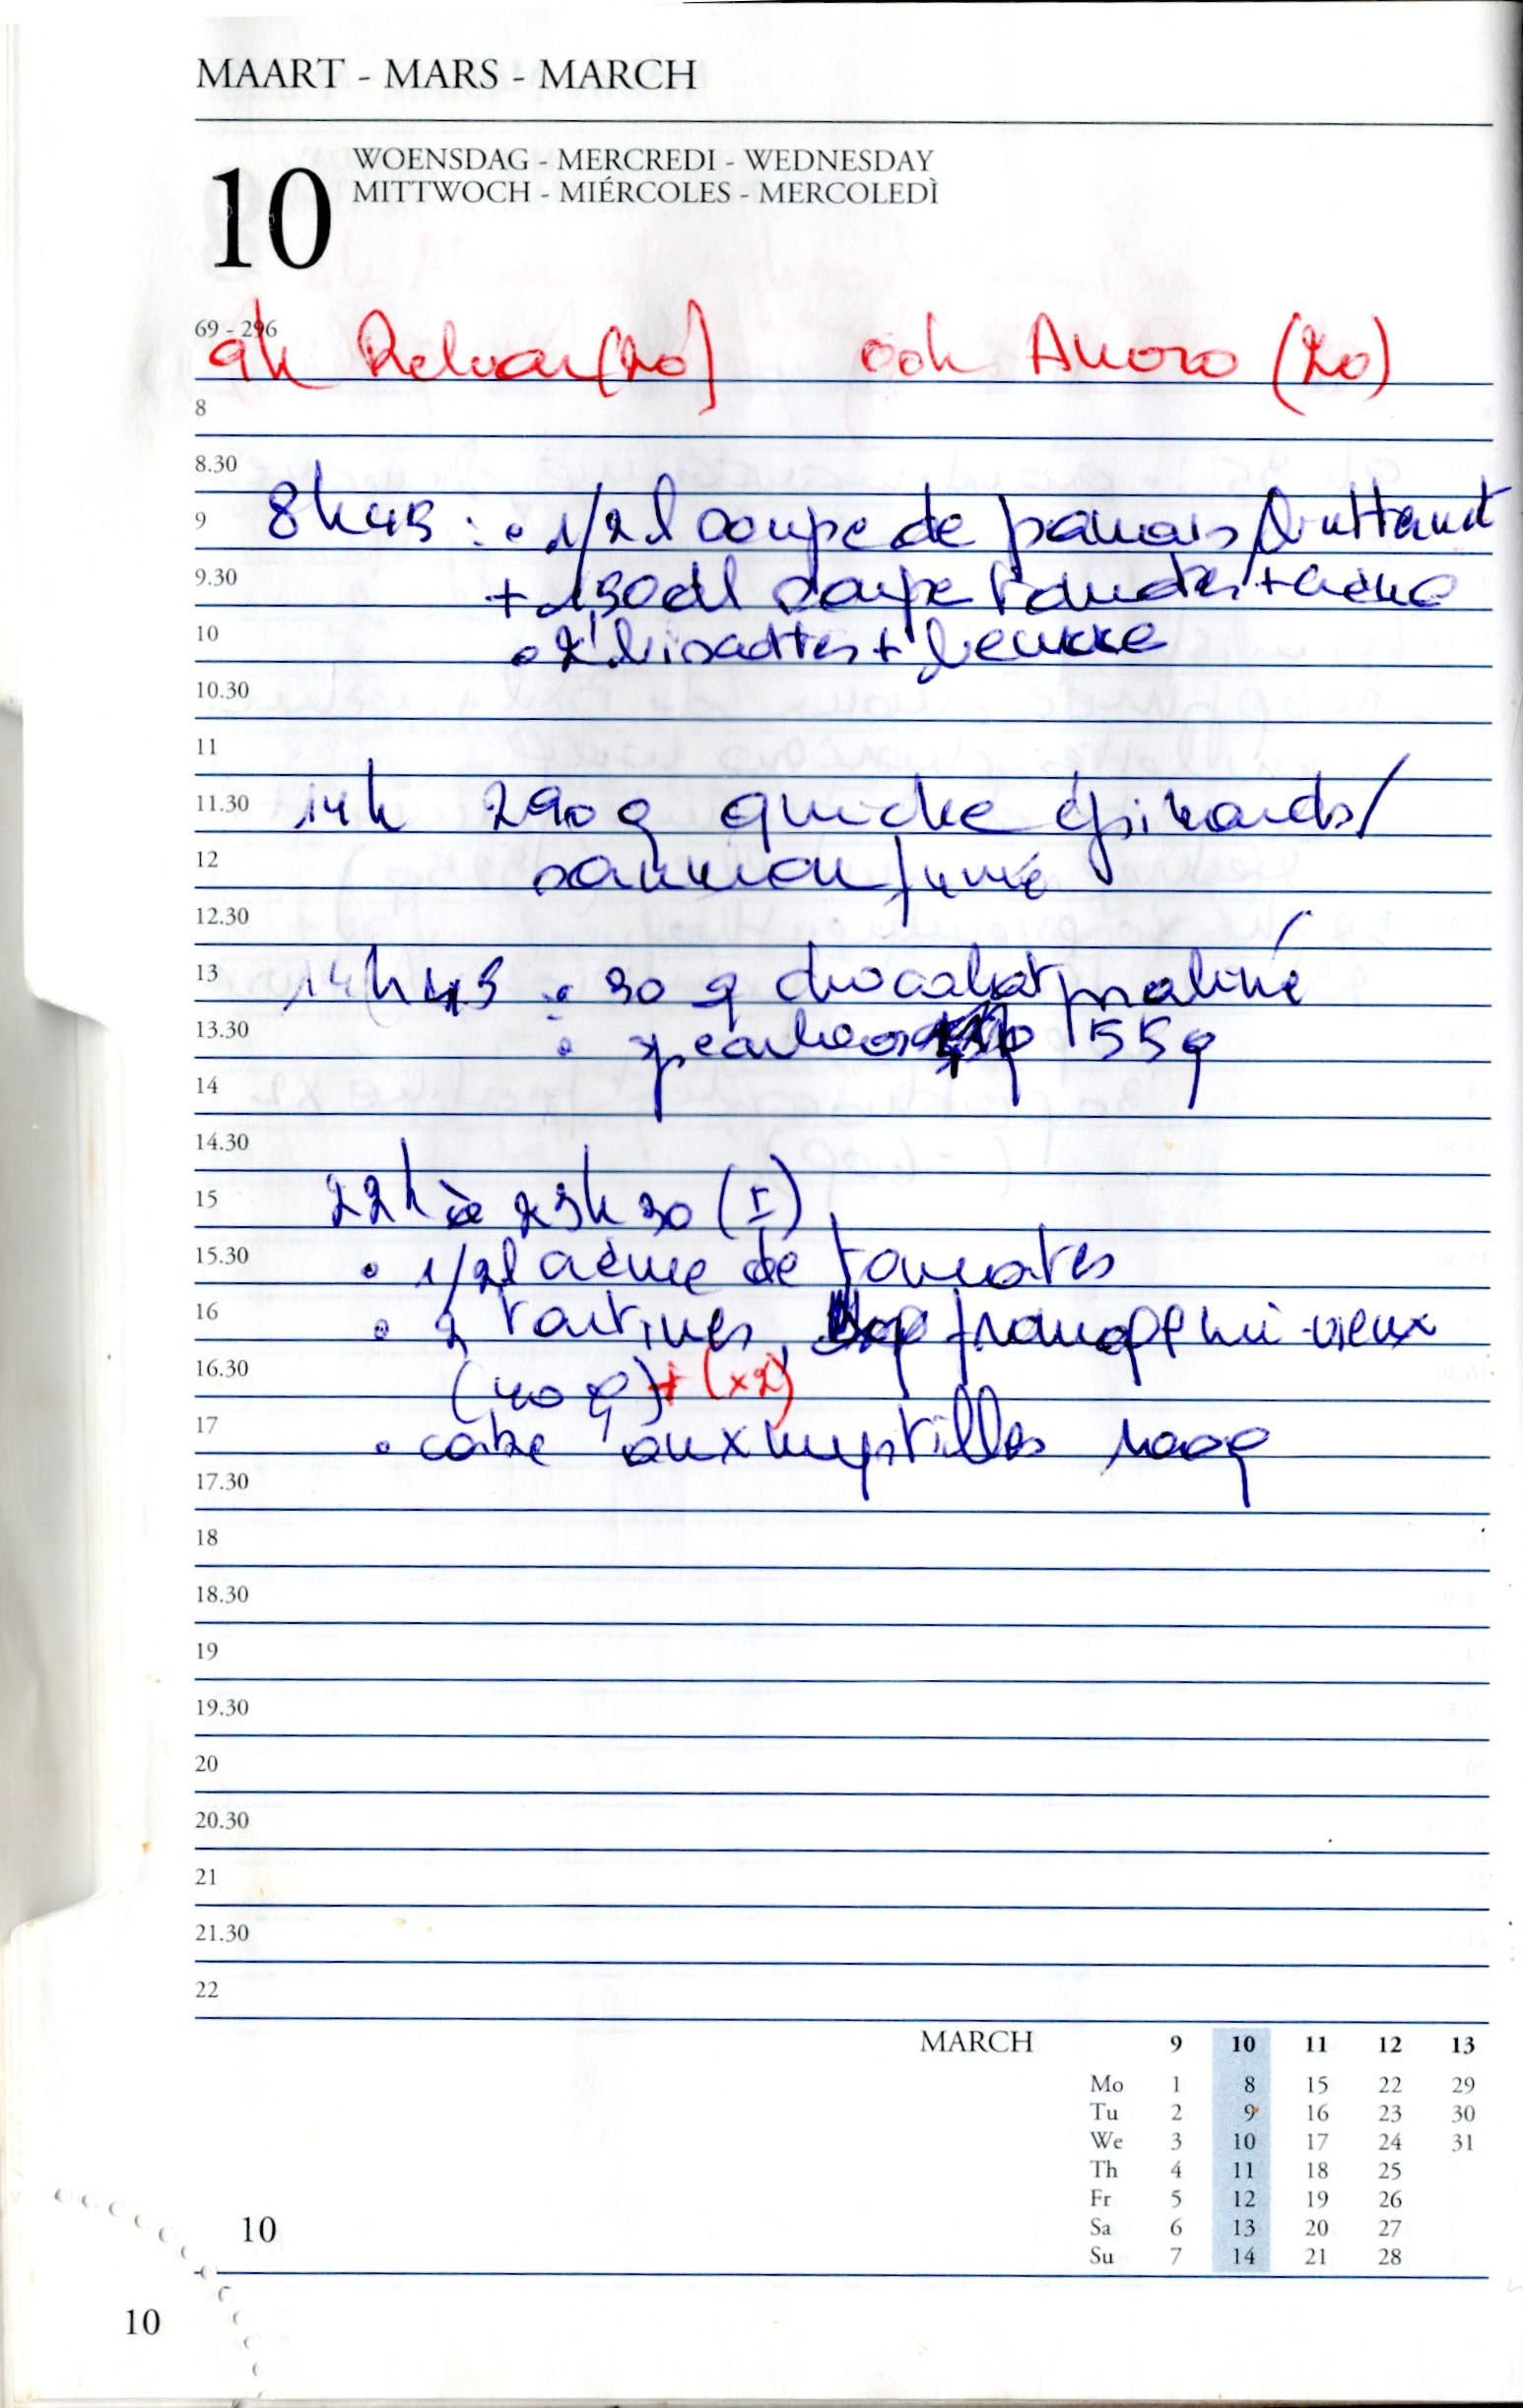 MAART - MARS - MARCH
10
WOENSDAG - MERCREDI - WEDNESDAY
MITTWOCH - MIÉRCOLES - MERCOLEDÌ
69 - 296
9h (20) 00h (20)
8
8.30
8h45 : • 1/2l soupe de panais/butternut
9
+ 150dl soupe tomates + crème
9.30
• 2 biscottes + beurre
10
10.30
11
14h 290g quiche épinards/
11.30
saumon fumé
12
12.30
14h45 : 30 g chocolat praliné
13
: 55g
13.30
14
14.30
22h à 23h30 (I)
15
• 1/2l crème de tomates
15.30
• 2 tartines, fromage mi-vieux
16
(40 g) + (x2)
16.30
• cake aux myrtilles 100g
17
17.30
18
18.30
19
19.30
20
20.30
21
21.30
22
MARCH 9 10 11 12 13
Mo 1 8 15 22 29
Tu 2 9 16 23 30
We 3 10 17 24 31
Th 4 11 18 25
Fr 5 12 19 26
Sa 6 13 20 27
Su 7 14 21 28
10
10